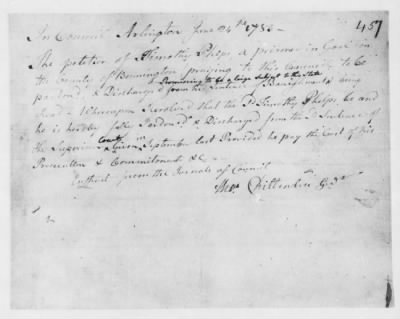 457
In Council Arlington June 24th 1783 —
The petition of Timothy Phelps a prisoner in Goal in
the County of Bennington praying to this Council to be
Promising to be a liege Subject to the State
pardoned, & Discharged from the Sentence of Banishment being
read — Whereupon Resolved that the Sd Timothy Phelps be and
he is hereby fully Pardoned & Discharged from the Sd Sentence of
the Superior Court in September last Provided he pay the Cost of his
Prosecution & Commitment &c
Extract from the Journals of Council
Thos Chittenden